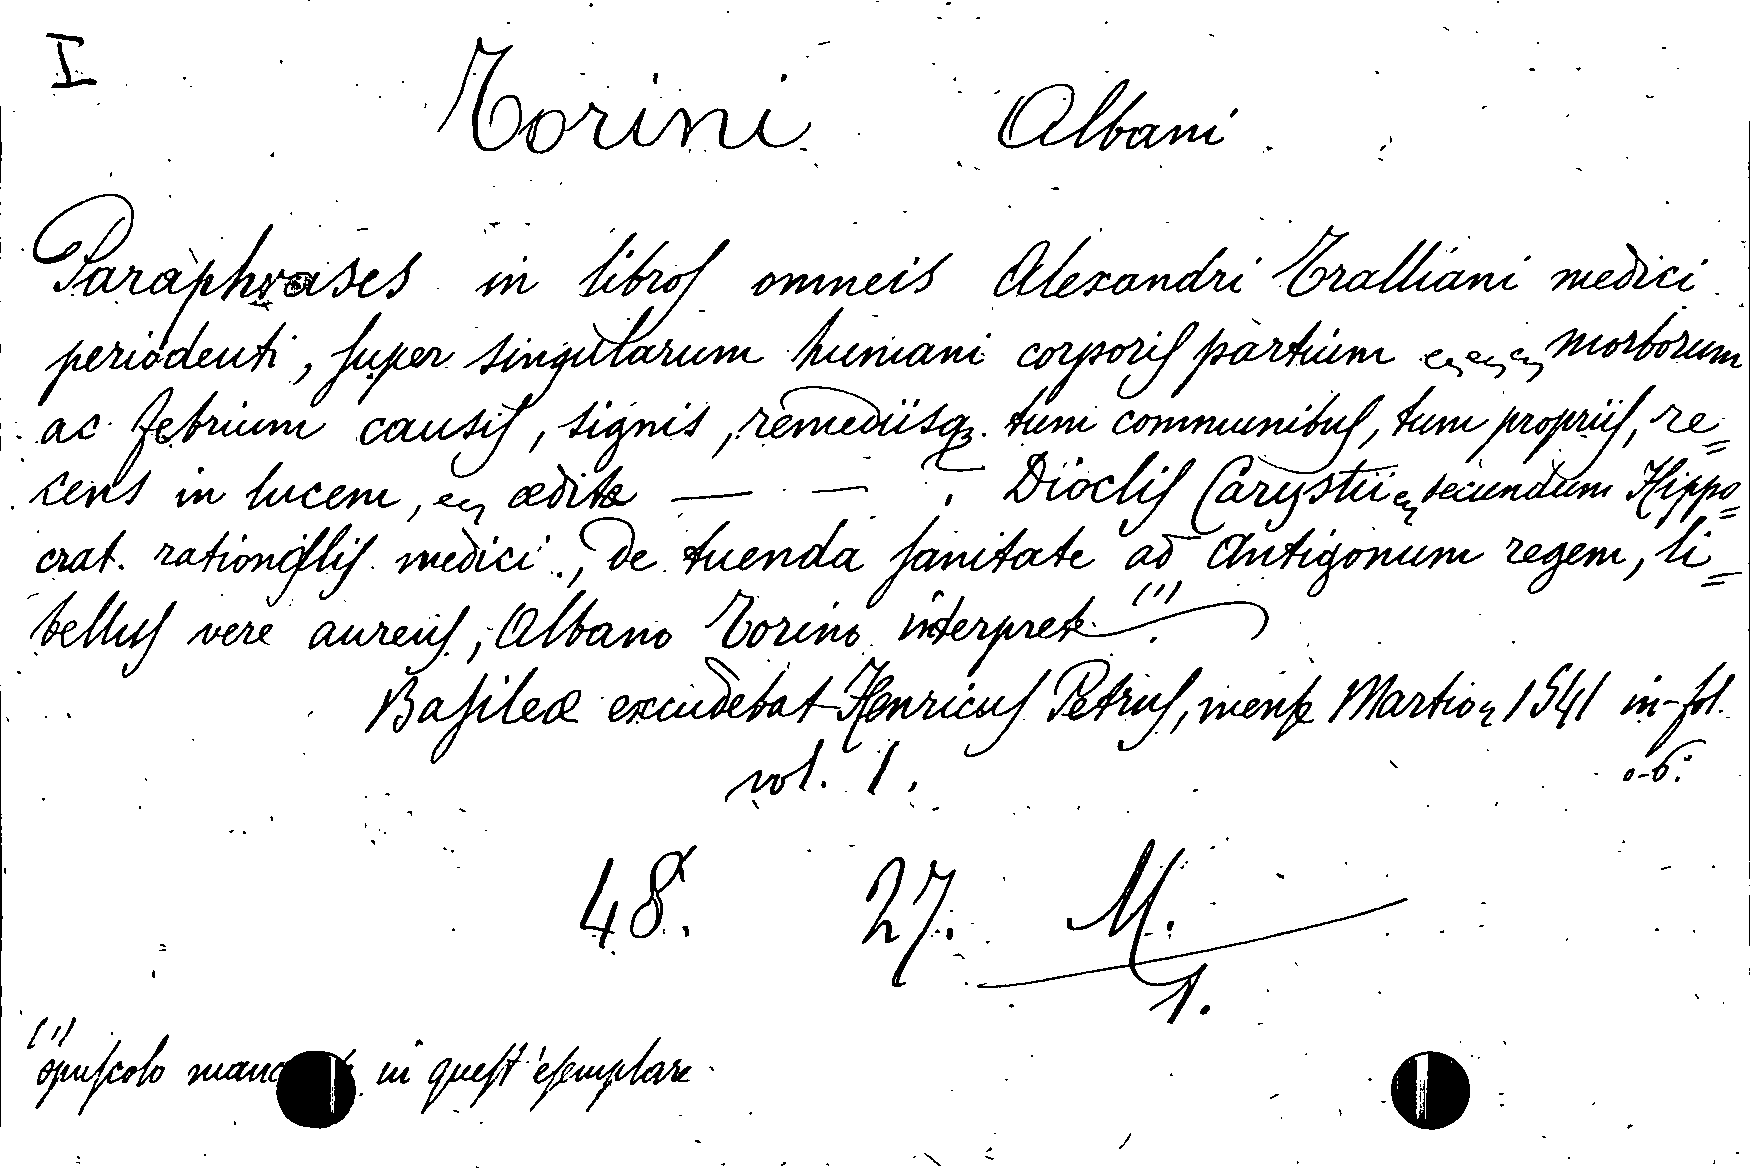 I
Torini Albani
Paraphrases in libros omneis Alexandri Tralliani medici
periodenti, super singularum humani corporis partium morborum
ac febrium causis, signis, remediisq. tum communibus, tum propriis, re=
cens in lucem, ædita — — . Dioclis Carystii secundum Hippo=
crat. medici, De tuenda sanitate ad Antigonum regem, li=
bellus vere aureus, Albano Torino interprete (1).
Basileæ excudebat Henricus Petrus, mense Martio, 1541 in-fol.
vol. 1. o-6:
48. 27. M.
1.
(1) opuscolo in quest'esemplare